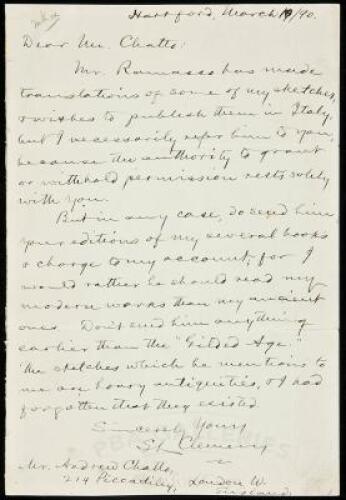 Hartford, March /90.
Dear Mr. Chatto:
Mr. Ramasso has made
translations of some of my sketches,
& wishes to publish them in Italy,
but I necessarily refer him to you,
because the authority to grant
or withhold permission rests solely
with you.
But in any case, do send him
your editions of my several books
& charge to my account, for I
would rather he should read my
modern works than my ancient
ones. Don't send him anything
earlier than the "Gilded Age."
The sketches which he mentions to
me are hoary antiquities, & I had
forgotten that they existed.
Sincerely Yours
SL Clemens
Mr. Andrew Chatto,
214 Piccadilly, London W.
England